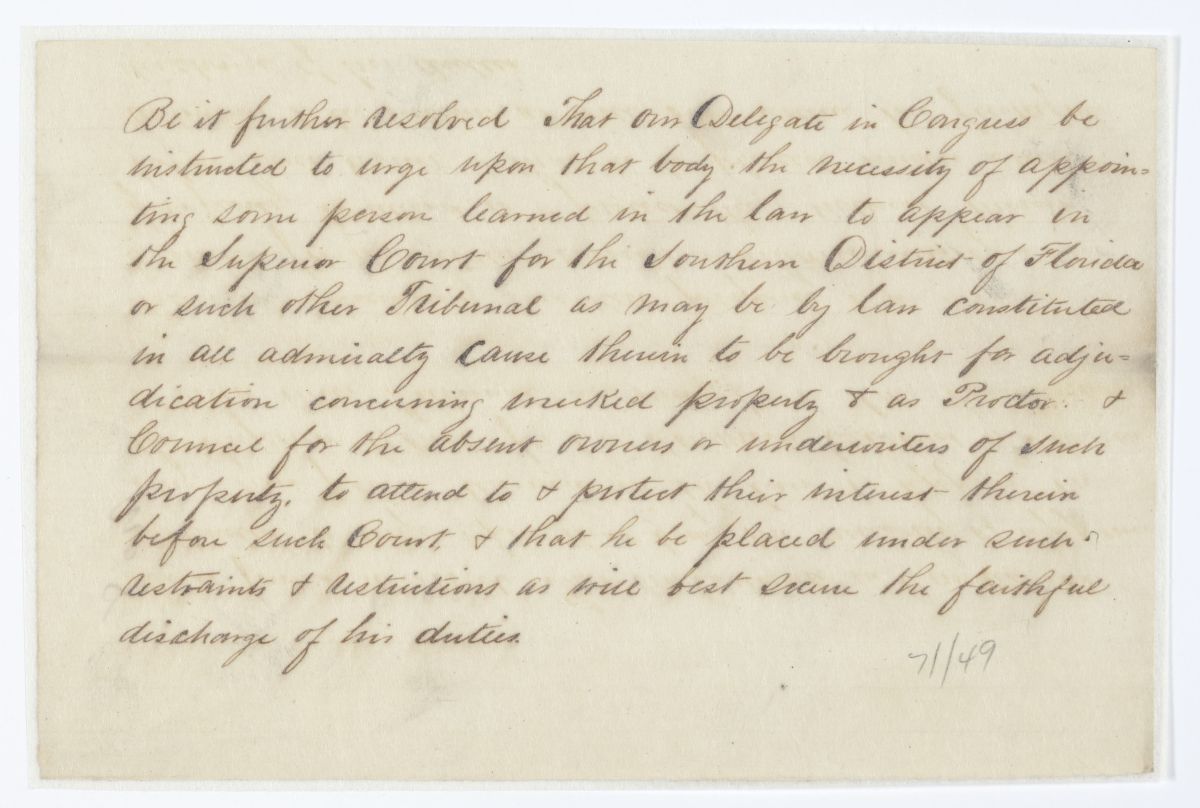 Be it further resolved That our Delegate in Congress be
instructed to urge upon that body the necessity of appoin=
ting some person learned in the law to appear in
the Superior Court for the Southern District of Florida
or such other Tribunal as may be by law constituted
in all admiralty Cause therein to be brought for adju=
dication concerning wrecked property & as Proctor &
Council for the absent owners or underwriters of such
property, to attend to & protect their interest therein
before such Court, & that he be placed under such
restraints & restrictions as will best secure the faithful
discharge of his duties.
71/49